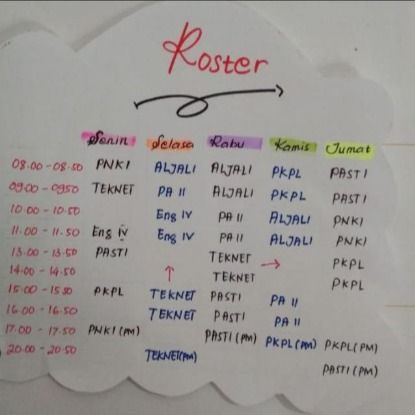 Roster
Senin Selasa Rabu Kamis Jumat
08.00 - 08.50 PNKI ALJALI ALJALI PKPL PASTI
09.00 - 09.50 TEKNET PA II ALJALI PKPL PASTI
10.00 - 10.50 Eng IV PA II ALJALI PNKI
11.00 - 11.50 Eng IV Eng IV PA II ALJALI PNKI
13.00 - 13.50 PASTI TEKNET → PKPL
14.00 - 14.50 ↑ TEKNET PKPL
15.00 - 15.50 PKPL TEKNET PASTI PA II
16.00 - 16.50 TEKNET PASTI PA II
17.00 - 17.50 PNKI (PM) PASTI (PM) PKPL (PM) PKPL (PM)
20.00 - 20.50 TEKNET (PM) PASTI (PM)